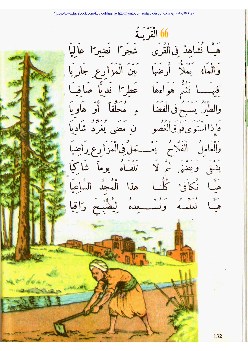 66 القرية
هيا نشاهد في القرى شجرا نضيرا عاليا
والماء يملأ أرضها بين المزارع جاريا
فيها نشم هواءها عطرا نديا صافيا
والطير يسبح في الفضا محلقا أو هاويا
فإذا استوى فوق الغصون مضى يغرد شاديا
والعامل الفلاح يعمل في المزارع راضيا
يشقى ويتعب ثم لا تلقاه يوما شاكيا
هيا نكافئ كلنا هذا المجد الساعيا
هيا نعلمه ونسعده ليصبح راقيا
152